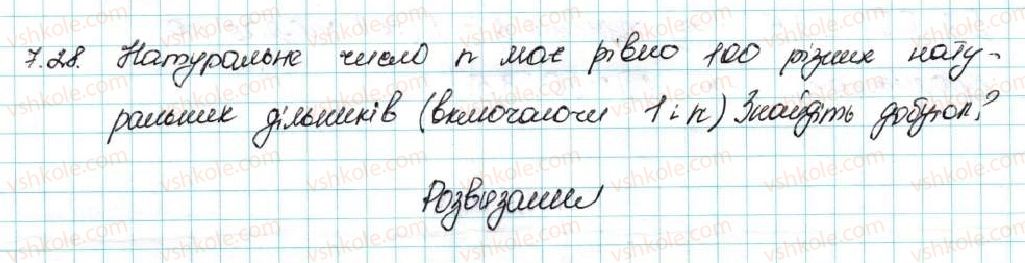 7.28. Натуральне число n має рівно 100 різних нату-
ральних дільників (включаючи 1 і n) Знайдіть добуток?
Розв'язання